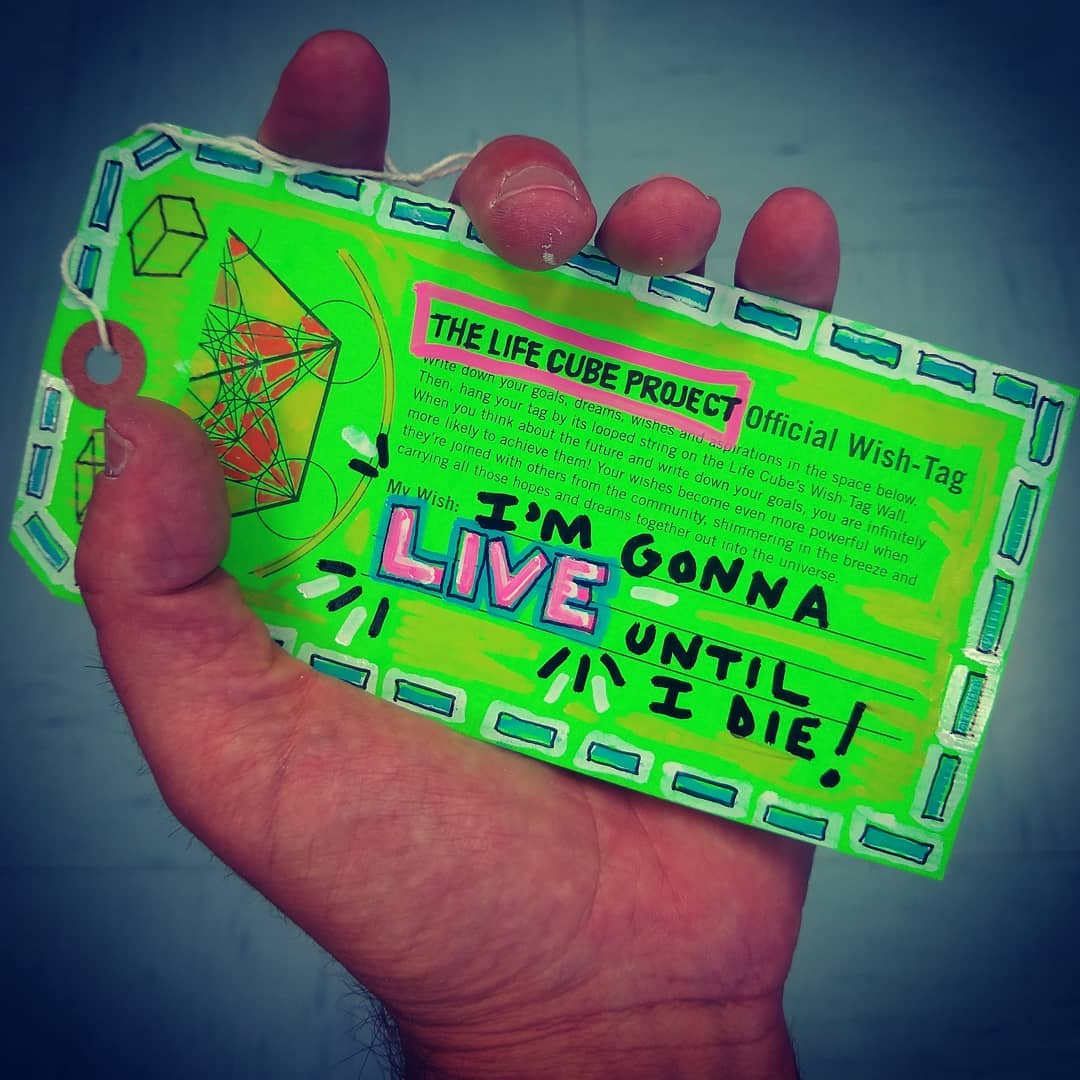 THE LIFE CUBE PROJECT Official Wish-Tag
Write down your goals, dreams, wishes and aspirations in the space below.
Then, hang your tag by its looped string on the Life Cube's Wish-Tag Wall.
When you think about the future and write down your goals, you are infinitely
more likely to achieve them! Your wishes become even more powerful when
they're joined with others from the community, shimmering in the breeze and
carrying all those hopes and dreams together out into the universe.
My Wish: I'M GONNA
LIVE UNTIL
I DIE!